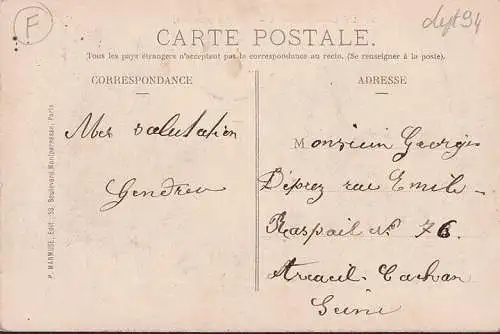 F
dept 94
CARTE POSTALE.
Tous les pays étrangers n'acceptent pas la correspondance au recto. (Se renseigner à la poste).
CORRESPONDANCE
ADRESSE
Mes salutation
Gendreu
Monsieur Georges
Déprez rue Emile
Raspail Nº 76
Arcueil-Cachan
Seine
P. MARMUSE, Édit., 53, Boulevard Montparnasse, Paris